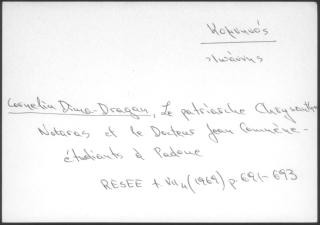 Κομνηνός
Ἰωάννης
Corneliu Dima-Dragan, Le patriarche Chrysanthe
Notaras et le Docteur Jean Comnène -
étudiants à Padoue
RESEE t. VII,4 (1969) p. 691-693